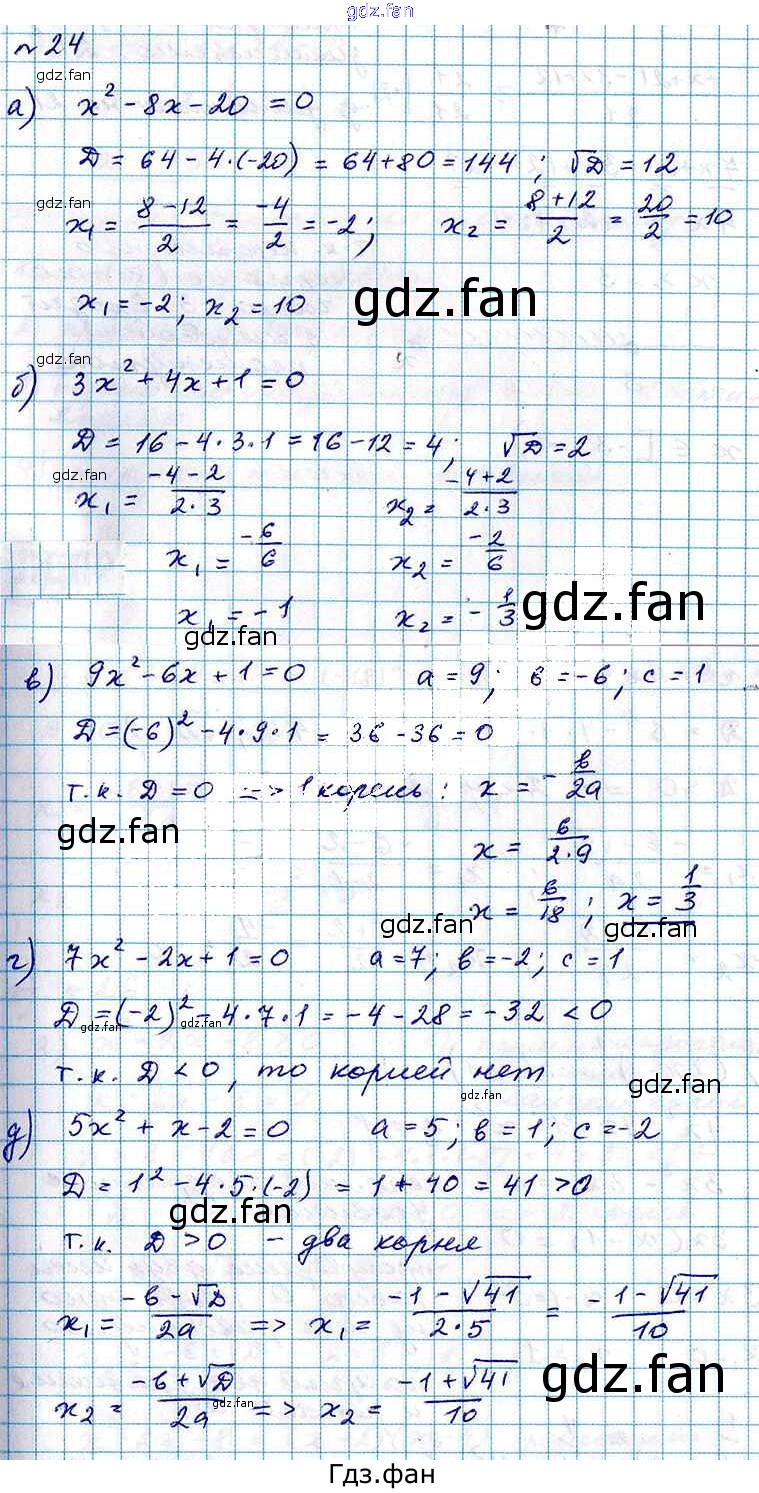 gdz.fan
№24
gdz.fan
а) x² - 8x - 20 = 0
D = 64 - 4·(-20) = 64 + 80 = 144 ; √D = 12
gdz.fan
x₁ = (8-12)/2 = -4/2 = -2; x₂ = (8+12)/2 = 20/2 = 10
x₁ = -2; x₂ = 10
gdz.fan
gdz.fan
б) 3x² + 4x + 1 = 0
D = 16 - 4·3·1 = 16 - 12 = 4; √D = 2
gdz.fan
x₁ = (-4-2)/(2·3) x₂ = (-4+2)/(2·3)
x₁ = -6/6 x₂ = -2/6
x₁ = -1 x₂ = -1/3
gdz.fan
gdz.fan
в) 9x² - 6x + 1 = 0 a = 9; в = -6; c = 1
D = (-6)² - 4·9·1 = 36 - 36 = 0
т.к. D = 0 => 1 корень: x = -в/2a
gdz.fan
x = 6/(2·9)
x = 6/18 ; x = 1/3
gdz.fan gdz.fan
г) 7x² - 2x + 1 = 0 a = 7; в = -2; c = 1
D = (-2)² = 4·7·1 = -4 - 28 = -32 < 0
gdz.fan gdz.fan gdz.fan
т.к. D < 0, то корней нет
gdz.fan
gdz.fan
д) 5x² + x - 2 = 0 a = 5; в = 1; c = -2
D = 1² - 4·5·(-2) = 1 + 40 = 41 > 0
gdz.fan
т.к. D > 0 - два корня
x₁ = (-в-√D)/2a => x₁ = (-1-√41)/(2·5) = (-1-√41)/10
x₂ = (-в+√D)/2a => x₂ = (-1+√41)/10
gdz.fan
gdz.fan
Гдз.фан